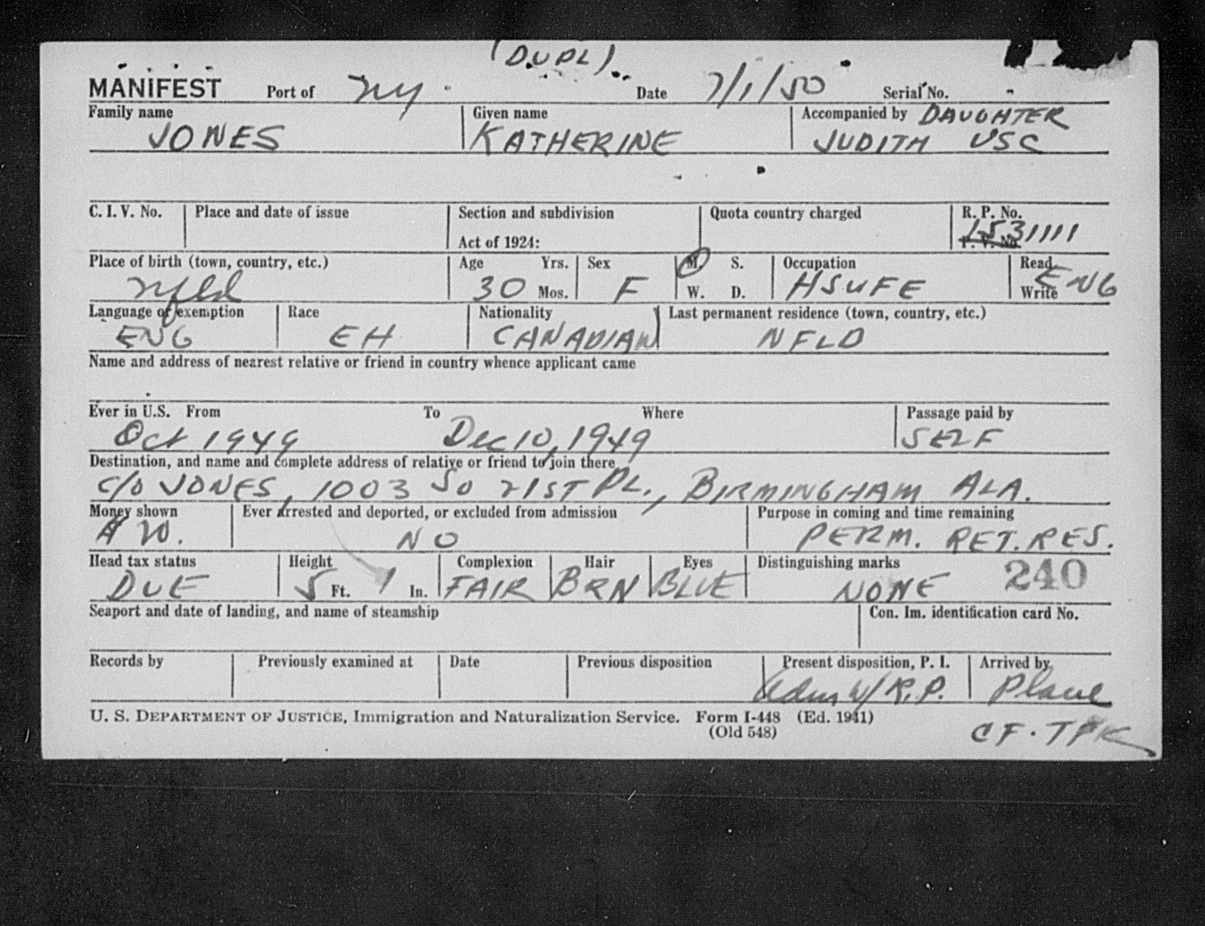 (DUPL)
MANIFEST Port of NY Date 7/1/50 Serial No.
Family name Given name Accompanied by DAUGHTER
JONES KATHERINE JUDITH USC
C. I. V. No. Place and date of issue Section and subdivision Quota country charged R. P. No.
Act of 1924: P. V. No. 1531111
Place of birth (town, country, etc.) Age Yrs. Sex M. S. Occupation Read
Nfld 30 Mos. F W. D. HSUFE Write ENG
Language or exemption Race Nationality Last permanent residence (town, country, etc.)
ENG EH CANADIAN NFLD
Name and address of nearest relative or friend in country whence applicant came
Ever in U.S. From To Where Passage paid by
Oct 1949 Dec 10, 1949 SELF
Destination, and name and complete address of relative or friend to join there
C/O JONES, 1003 SO 21ST PL., BIRMINGHAM ALA.
Money shown Ever arrested and deported, or excluded from admission Purpose in coming and time remaining
NO PERM. RET. RES.
Head tax status Height Complexion Hair Eyes Distinguishing marks 240
DUE 5 Ft. 1 In. FAIR BRN BLUE NONE
Seaport and date of landing, and name of steamship Con. Im. identification card No.
Records by Previously examined at Date Previous disposition Present disposition, P. I. Arrived by
Adm w/ R.P. Plane
U. S. DEPARTMENT OF JUSTICE, Immigration and Naturalization Service. Form I-448 (Ed. 1941)
(Old 548) CF. TPK